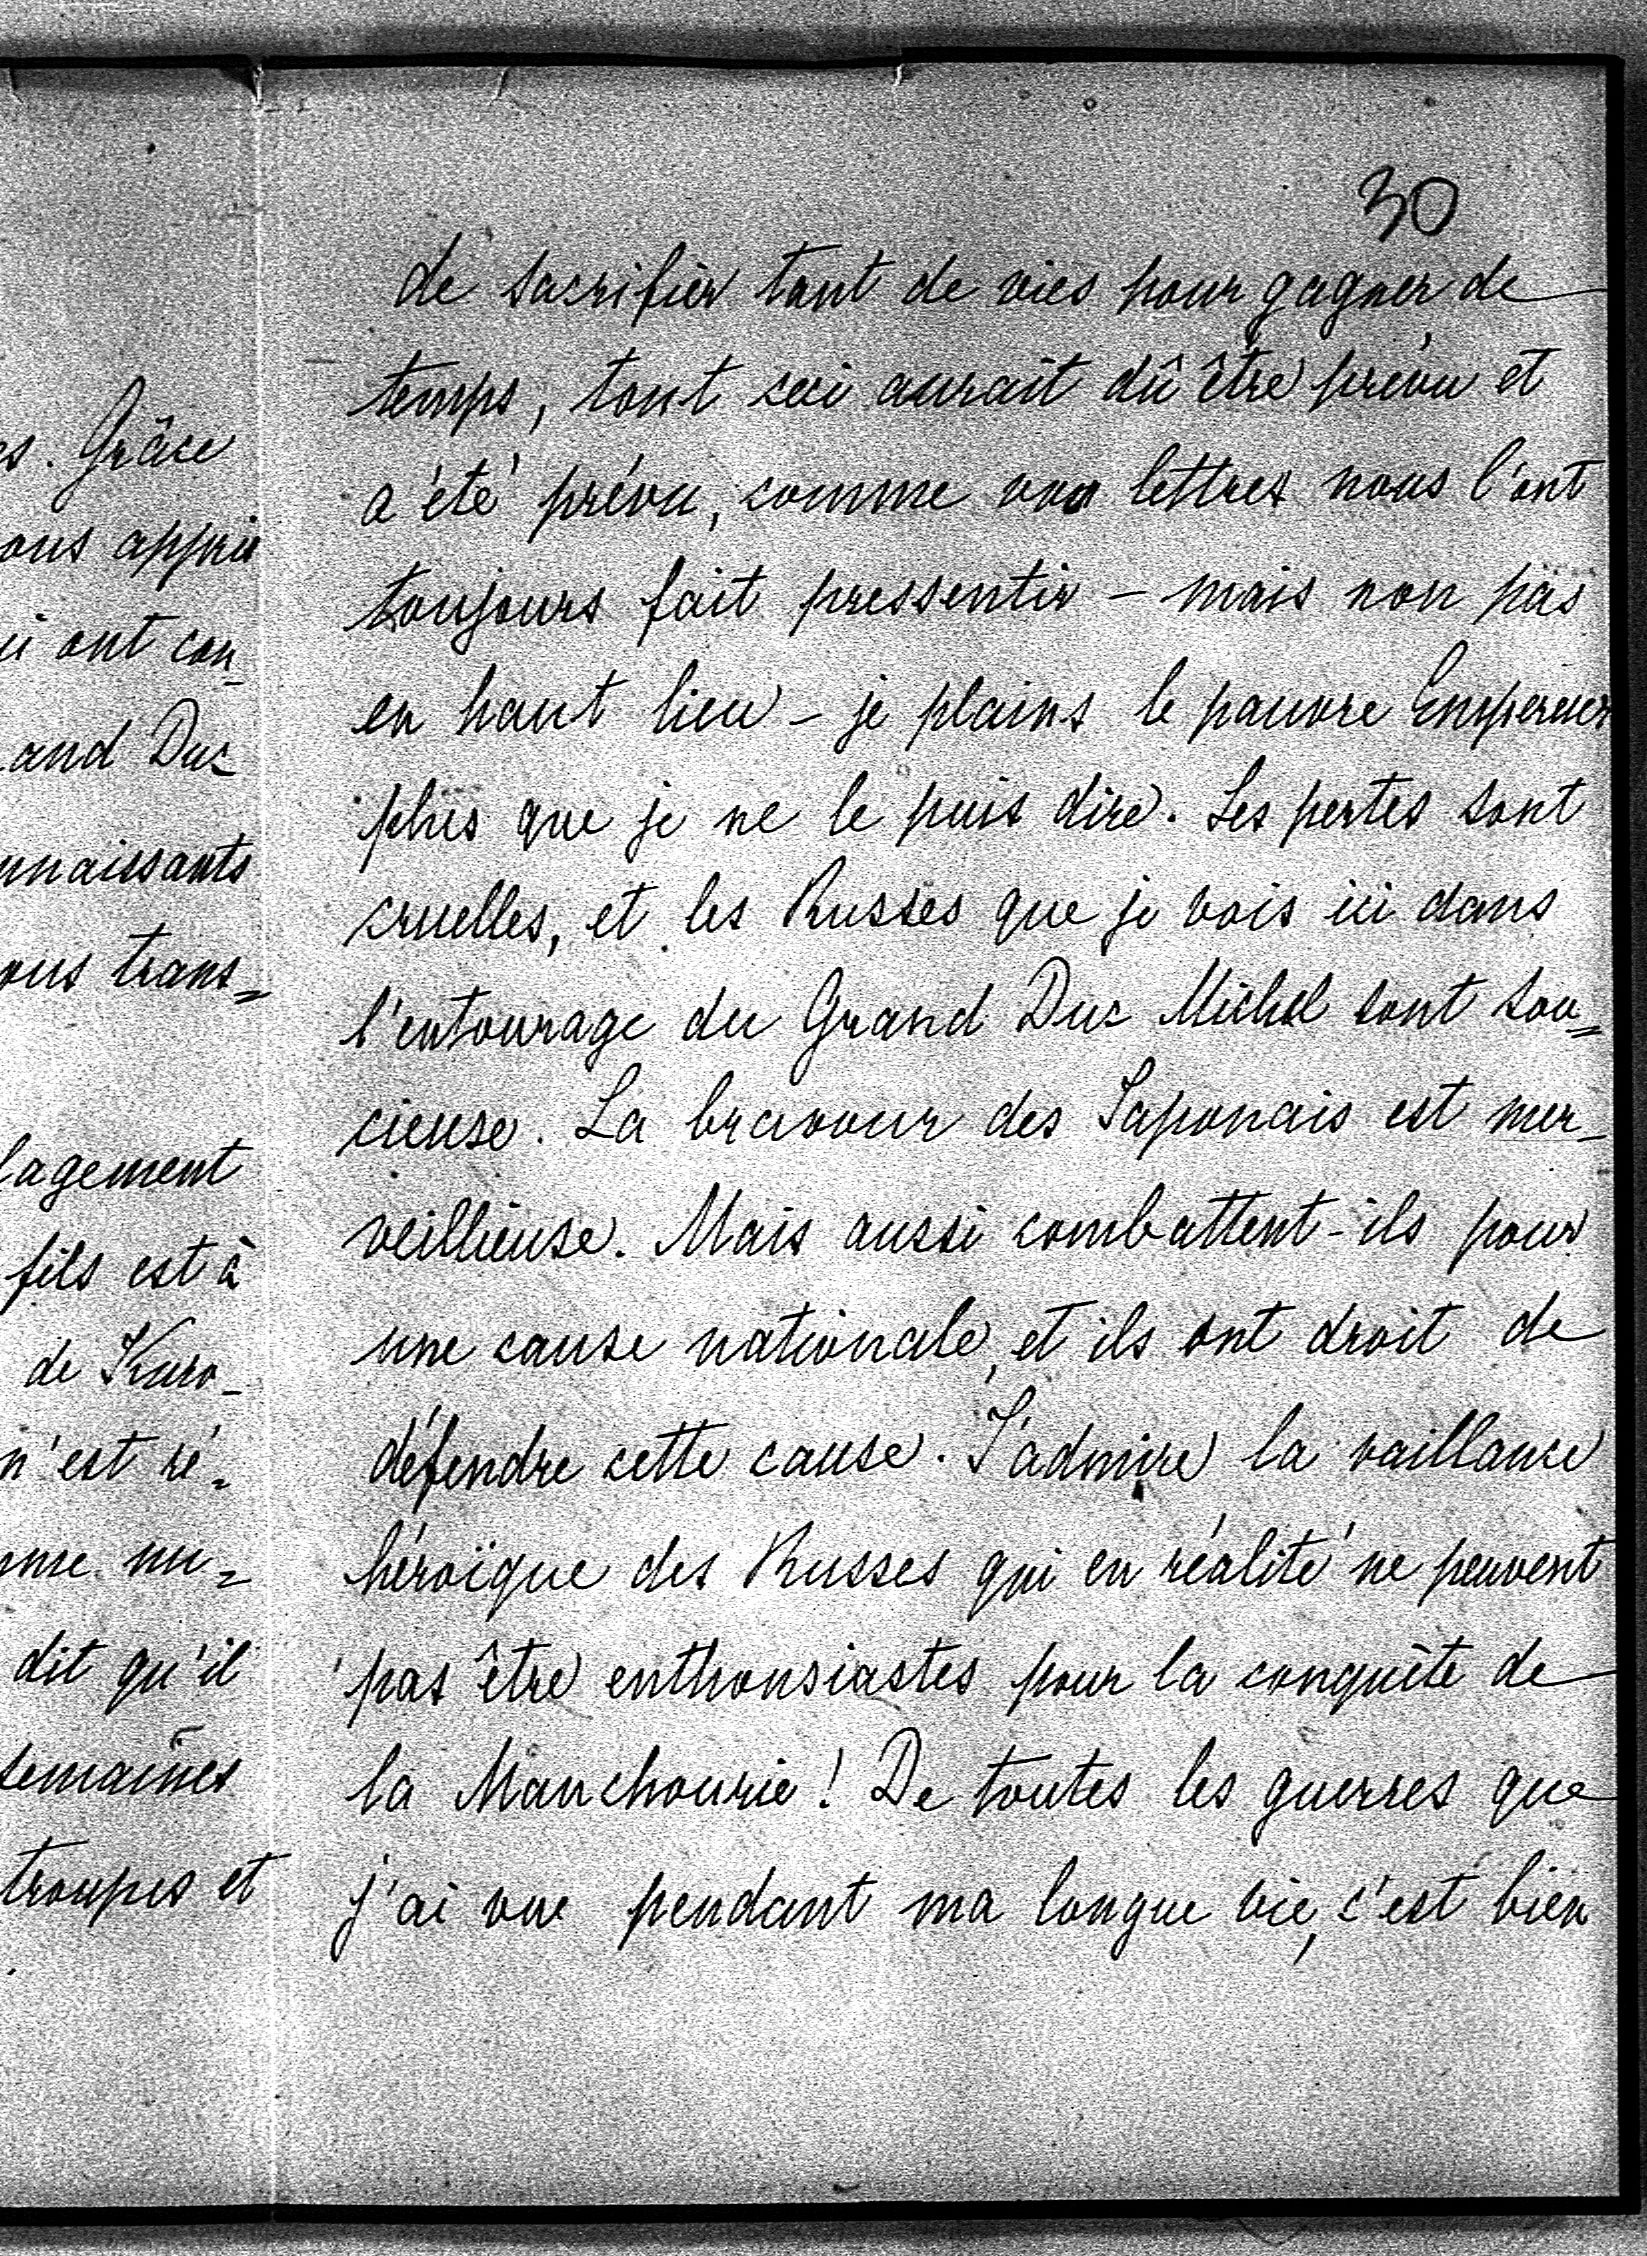 s. Grâce
ous appris
i ont con_
and Duc
nnaissants
ous trans=
lagement
fils est à
de Kuro_
n'est ré=
me nu=
dit qu'il
semaines
troupes et
30
de sacrifier tant de vies pour gagner de
temps, tout ceci aurait dû être prévu et
a été prévu, comme vos lettres nous l'ont
toujours fait pressentir – mais non pas
en haut lieu – je plains le pauvre Empereur
plus que je ne le puis dire. Les pertes sont
cruelles, et les Russes que je vois ici dans
l'entourage du Grand Duc Michel sont sou=
cieuse. La bravour des Japonais est mer_
veillieuse. Mais aussi combattent-ils pour
une cause nationale, et ils ont droit de
défendre cette cause. J'admire la vaillance
héroïque des Russes qui en réalité ne peuvent
pas être enthousiastes pour la conquête de
la Manchourie! De toutes les guerres que
j'ai vue pendant ma longue vie, c'est bien